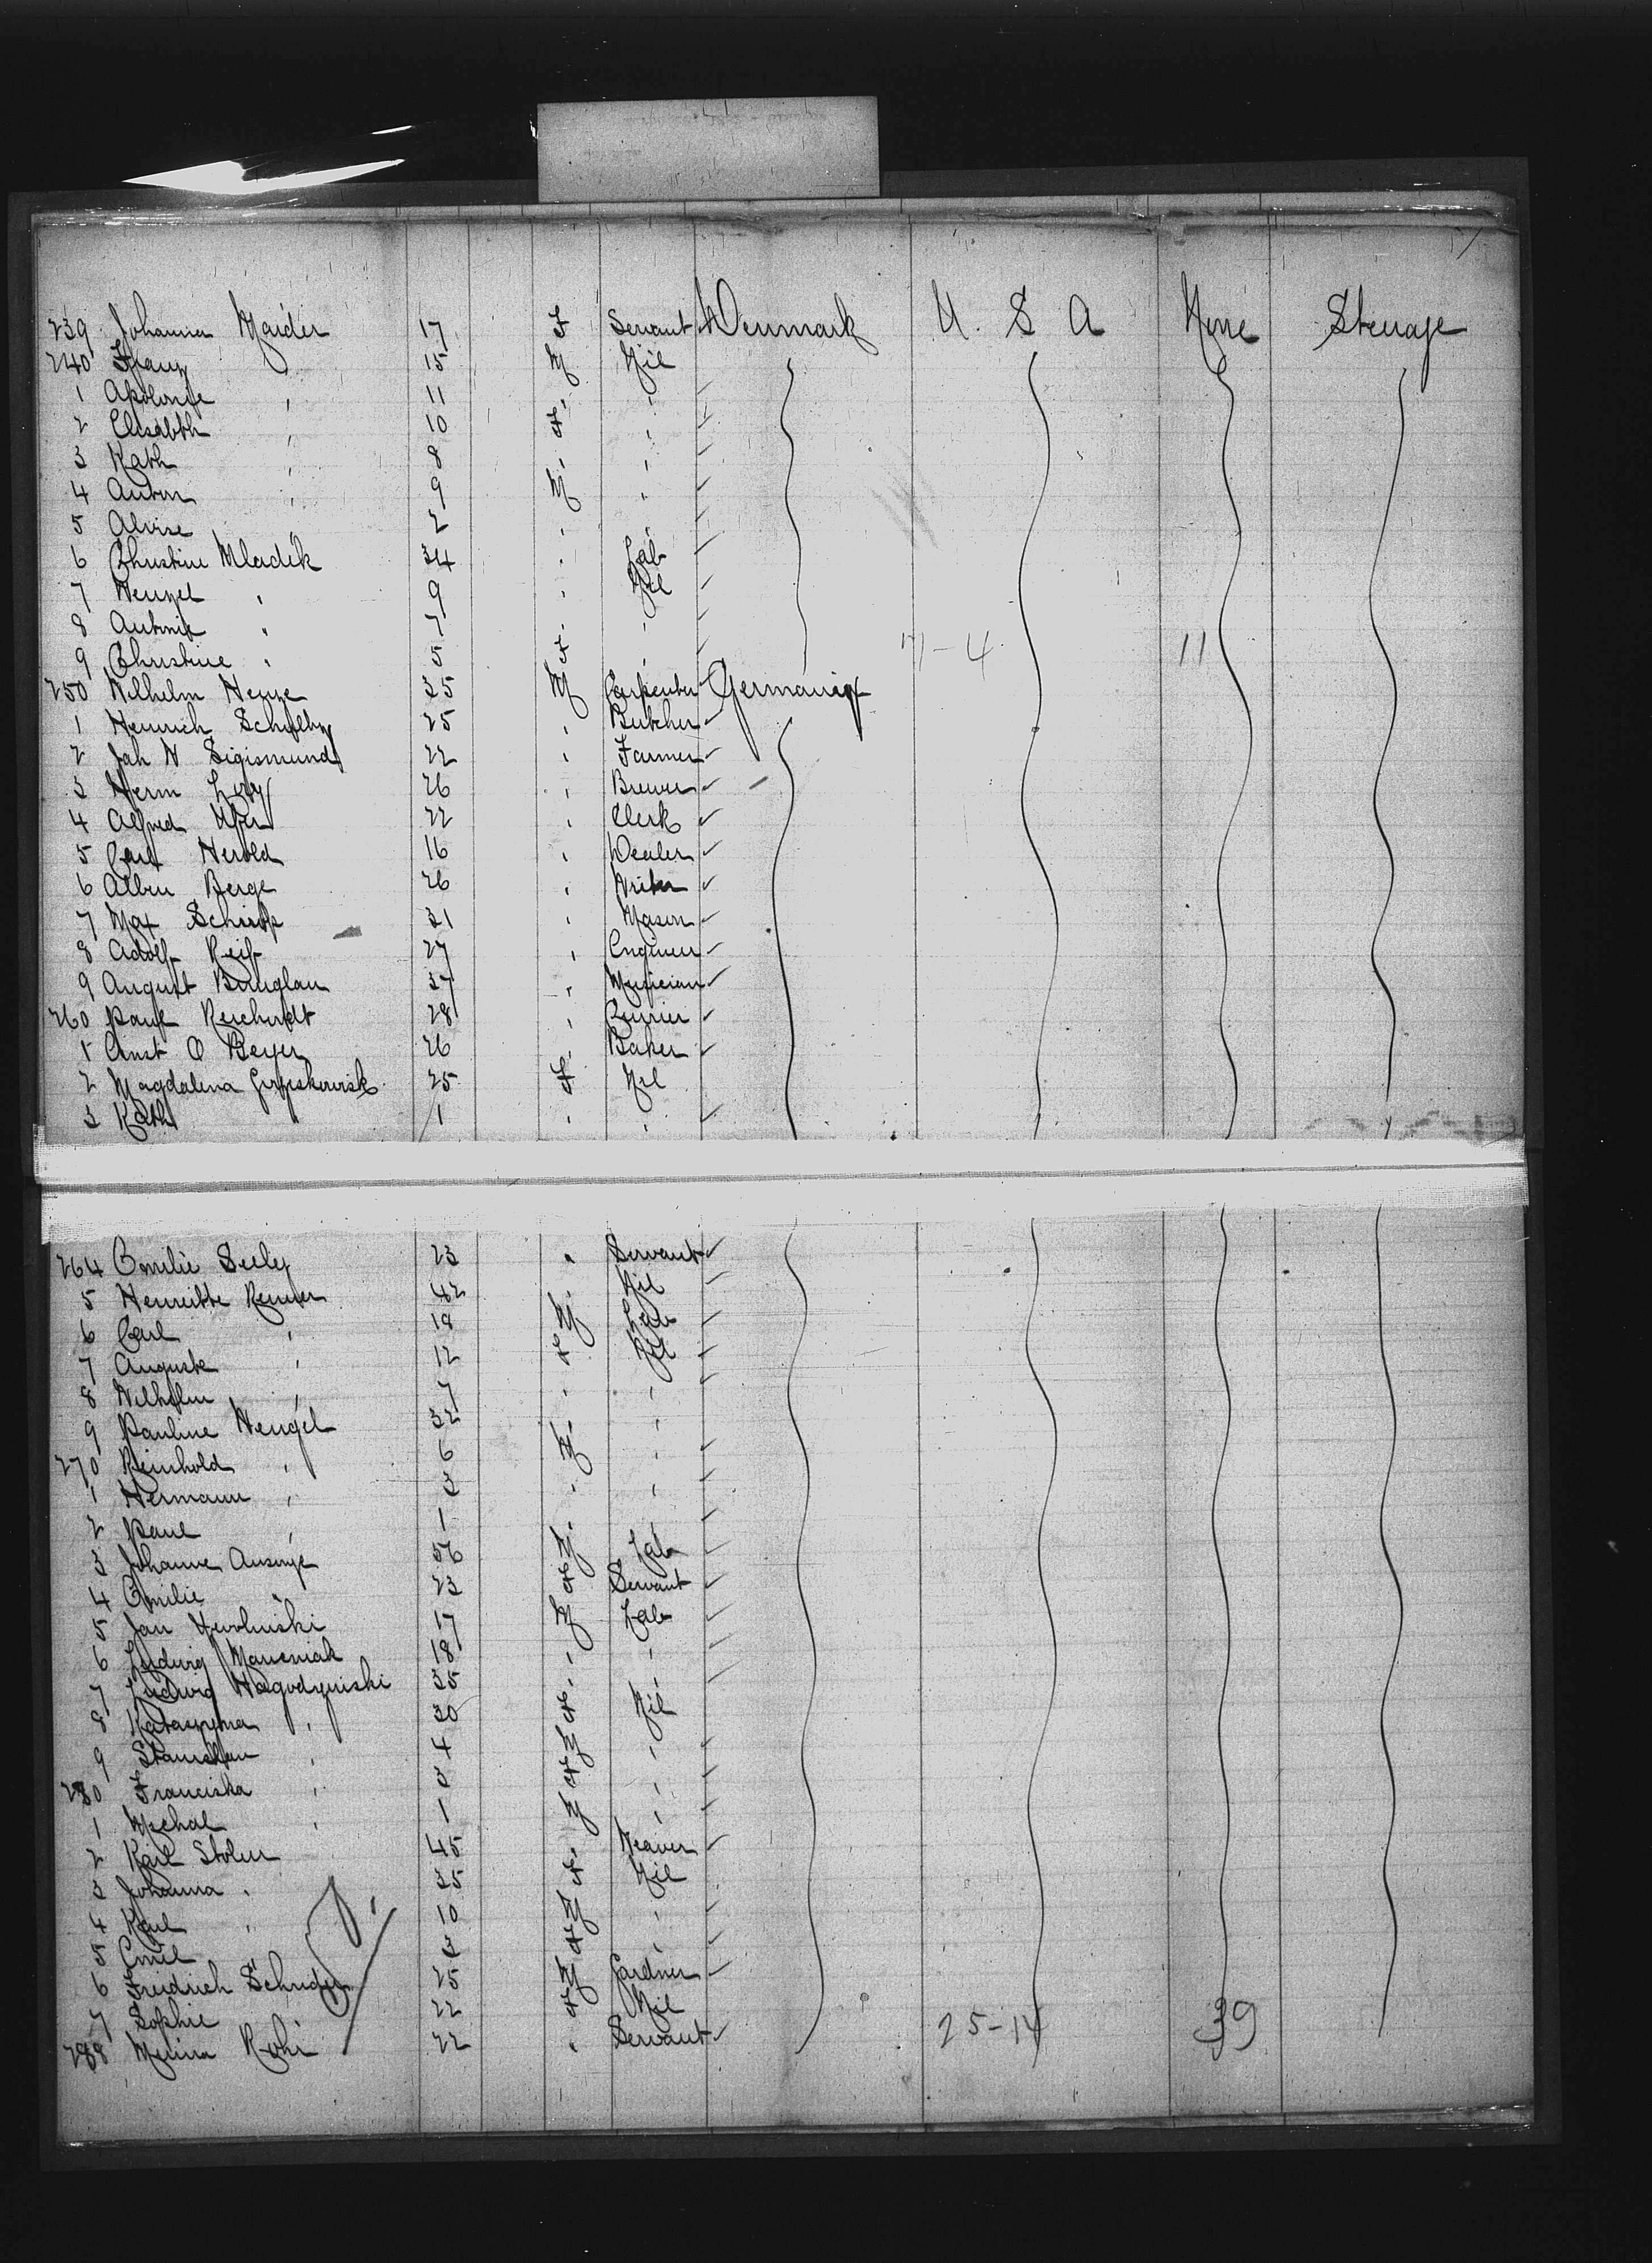 239 Johanna Maider 17 F Servant Denmark U. S A None Steerage
240 Franz " 15 M Nil
1 Apolonie " 11 F "
2 Elisabth " 10 " "
3 Kath " 8 " "
4 Anton " 9 M "
5 2 " "
6 Christine Mladek 34 " Lab
7 Wenzel " 9 " Nil
8 Antonie " 7 " "
9 Christine " 5 F " 7-4 11
250 Wilhelm 35 M Carpenter Germany
1 Heinrich 25 " Butcher
2 Joh N Sigismund 22 " Farmer
3 Herm Levy 26 " Brewer
4 Alfred 22 " Clerk
5 Carl Herold 16 " Dealer
6 Albin Berge 26 " Writer
7 Max 31 " Mason
8 Adolf Reif 27 " Engineer
9 August 37 " Musician
260 Paul 28 " Currier
1 Ernst O Beyer 26 " Baker
2 Magdalena 25 F Nil
3 Kath 1 " "
264 Emilie Seeley 23 " Servant
5 Henriette Renner 42 " Nil
6 Carl " 19 M Lab
7 Auguste " 12 F Nil
8 Wilhelm " 7 " "
9 Pauline Hengel 32 " "
270 Reinhold " 6 M "
1 Hermann " 3 " "
2 Paul " 1 " "
3 Johanne 56 M Lab
4 Emilie " 23 F Servant
5 Jan 17 M Lab
6 Ludwig 18 " "
7 Ludwig 35 " "
8 " 30 F Nil
9 Stanislau " 4 M "
280 Franciska " 3 F "
1 Michal " 1 M "
2 Karl Stolen 45 " Weaver
3 Johanna " 35 F Nil
4 Karl " 10 M "
5 Emil 3 F "
6 Freidrich 25 M Gardner
7 Sophie 22 F Nil
288 22 " Servant 25-14 39